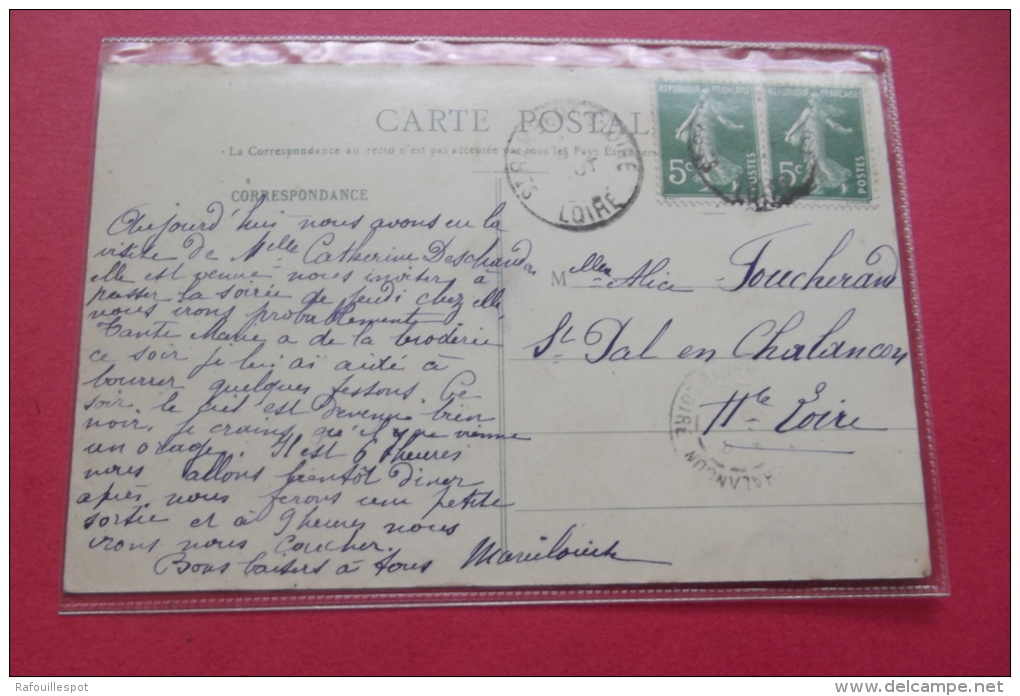 CARTE POSTAL
La Correspondance au recto n'est pas acceptée par tous les Pays Etrangers
CORRESPONDANCE
REPUBLIQUE FRANÇAISE
5c
POSTES
REPUBLIQUE FRANÇAISE
5c
POSTES
LOIRE
Aujourd'hui nous avons eu la
visite de Melle Catherine Deschandon
elle est venue nous inviter à
passer la soirée de jeudi chez elle,
nous irons probablement
Tante Marie a de la broderie
ce soir je lui ai aidé à
bourrer quelques festons. Ce
soir, le ciel est devenu bien
noir, je crains qu'il y vienne
un orage. Il est 6 heures
nous allons bientôt diner
après nous ferons une petite
sortie et à 9 heures nous
irons nous coucher.
Bons baisers à tous
Melle Alice Foucherand
St Pal en Chalancon
Hte Loire
HALANCON
LOIRE
Rafouillespot
www.delcampe.net